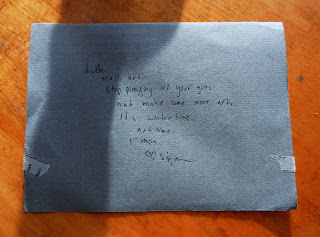 dude
mail art.
stop playing w/ your guns
and make some more art.
It's winter time.
art time.